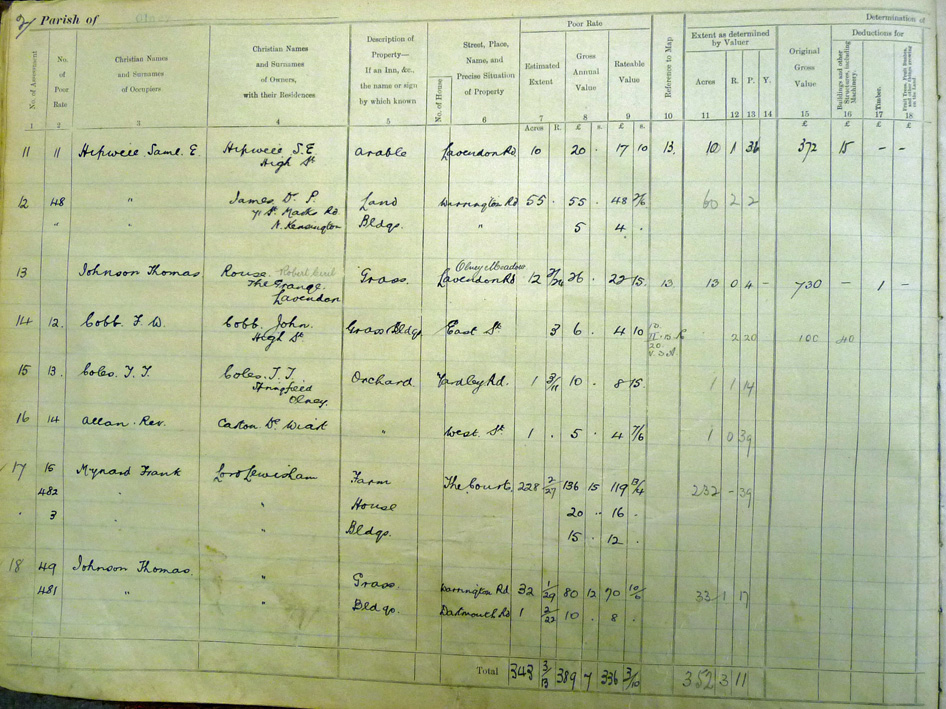 2/ Parish of Olney Determination of
Poor Rate Extent as determined by Valuer Deductions for
No. of Assessment No. of Poor Rate Christian Names and Surnames of Occupiers Christian Names and Surnames of Owners, with their Residences Description of Property— If an Inn, &c., the name or sign by which known No. of House Street, Place, Name, and Precise Situation of Property Estimated Extent Gross Annual Value Rateable Value Reference to Map Acres R. P. Y. Original Gross Value Buildings and other Structures, including Machinery. Timber. Fruit Trees, Fruit Bushes, and other things growing on the Land
1 2 3 4 5 6 7 8 9 10 11 12 13 14 15 16 17 18
Acres R. £ s. £ s. £ £ £ £
11 11 Hipwell Saml. E. Hipwell S.E. Arable Lavendon Rd 10 20 . 17 10 13. 10 1 36 372 15 - -
High St
12 48 " James D. P. Land Warrington Rd 55 . 55 . 48 2/6 60 2 2
71 St. Marks Rd.
" " N. Kensington Bldgs. " 5 4 .
13 Johnson Thomas Rouse. Robert Cecil Grass. Olney Meadow
Lavendon Rd 12 27/24 26 . 22 15. 13. 13 0 4 - 730 - 1 -
The Grange.
Lavendon
14 12. Cobb. F. W. Cobb. John. Grass & Bldgs East St 3 6 . 4 10 2 20 100 40
High St.
15 13. Coles. T. T. Coles. T. T. Orchard. Yardley Rd. 1 3/11 10 . 8 15. 1 1 14
Springfield
Olney.
16 14 Allan. Rev. Carton De Wiart " West St 1 . 5 . 4 7/6 1 0 39
17 15 Mynard Frank Lord Lewisham Farm The Courts, 228 2/27 136 15 119 13/4 232 - 39
482 " " House 20 .. 16 .
3 " " Bldgs. 15 . 12 .
18 49 Johnson Thomas. " Grass. Warrington Rd 32 1/29 80 12 70 10/6 33 1 17
481 " " Bldgs. Dartmouth Rd 1 2/22 10 . 8 .
Total 343 3/13 389 7 336 3/10 352 3 11